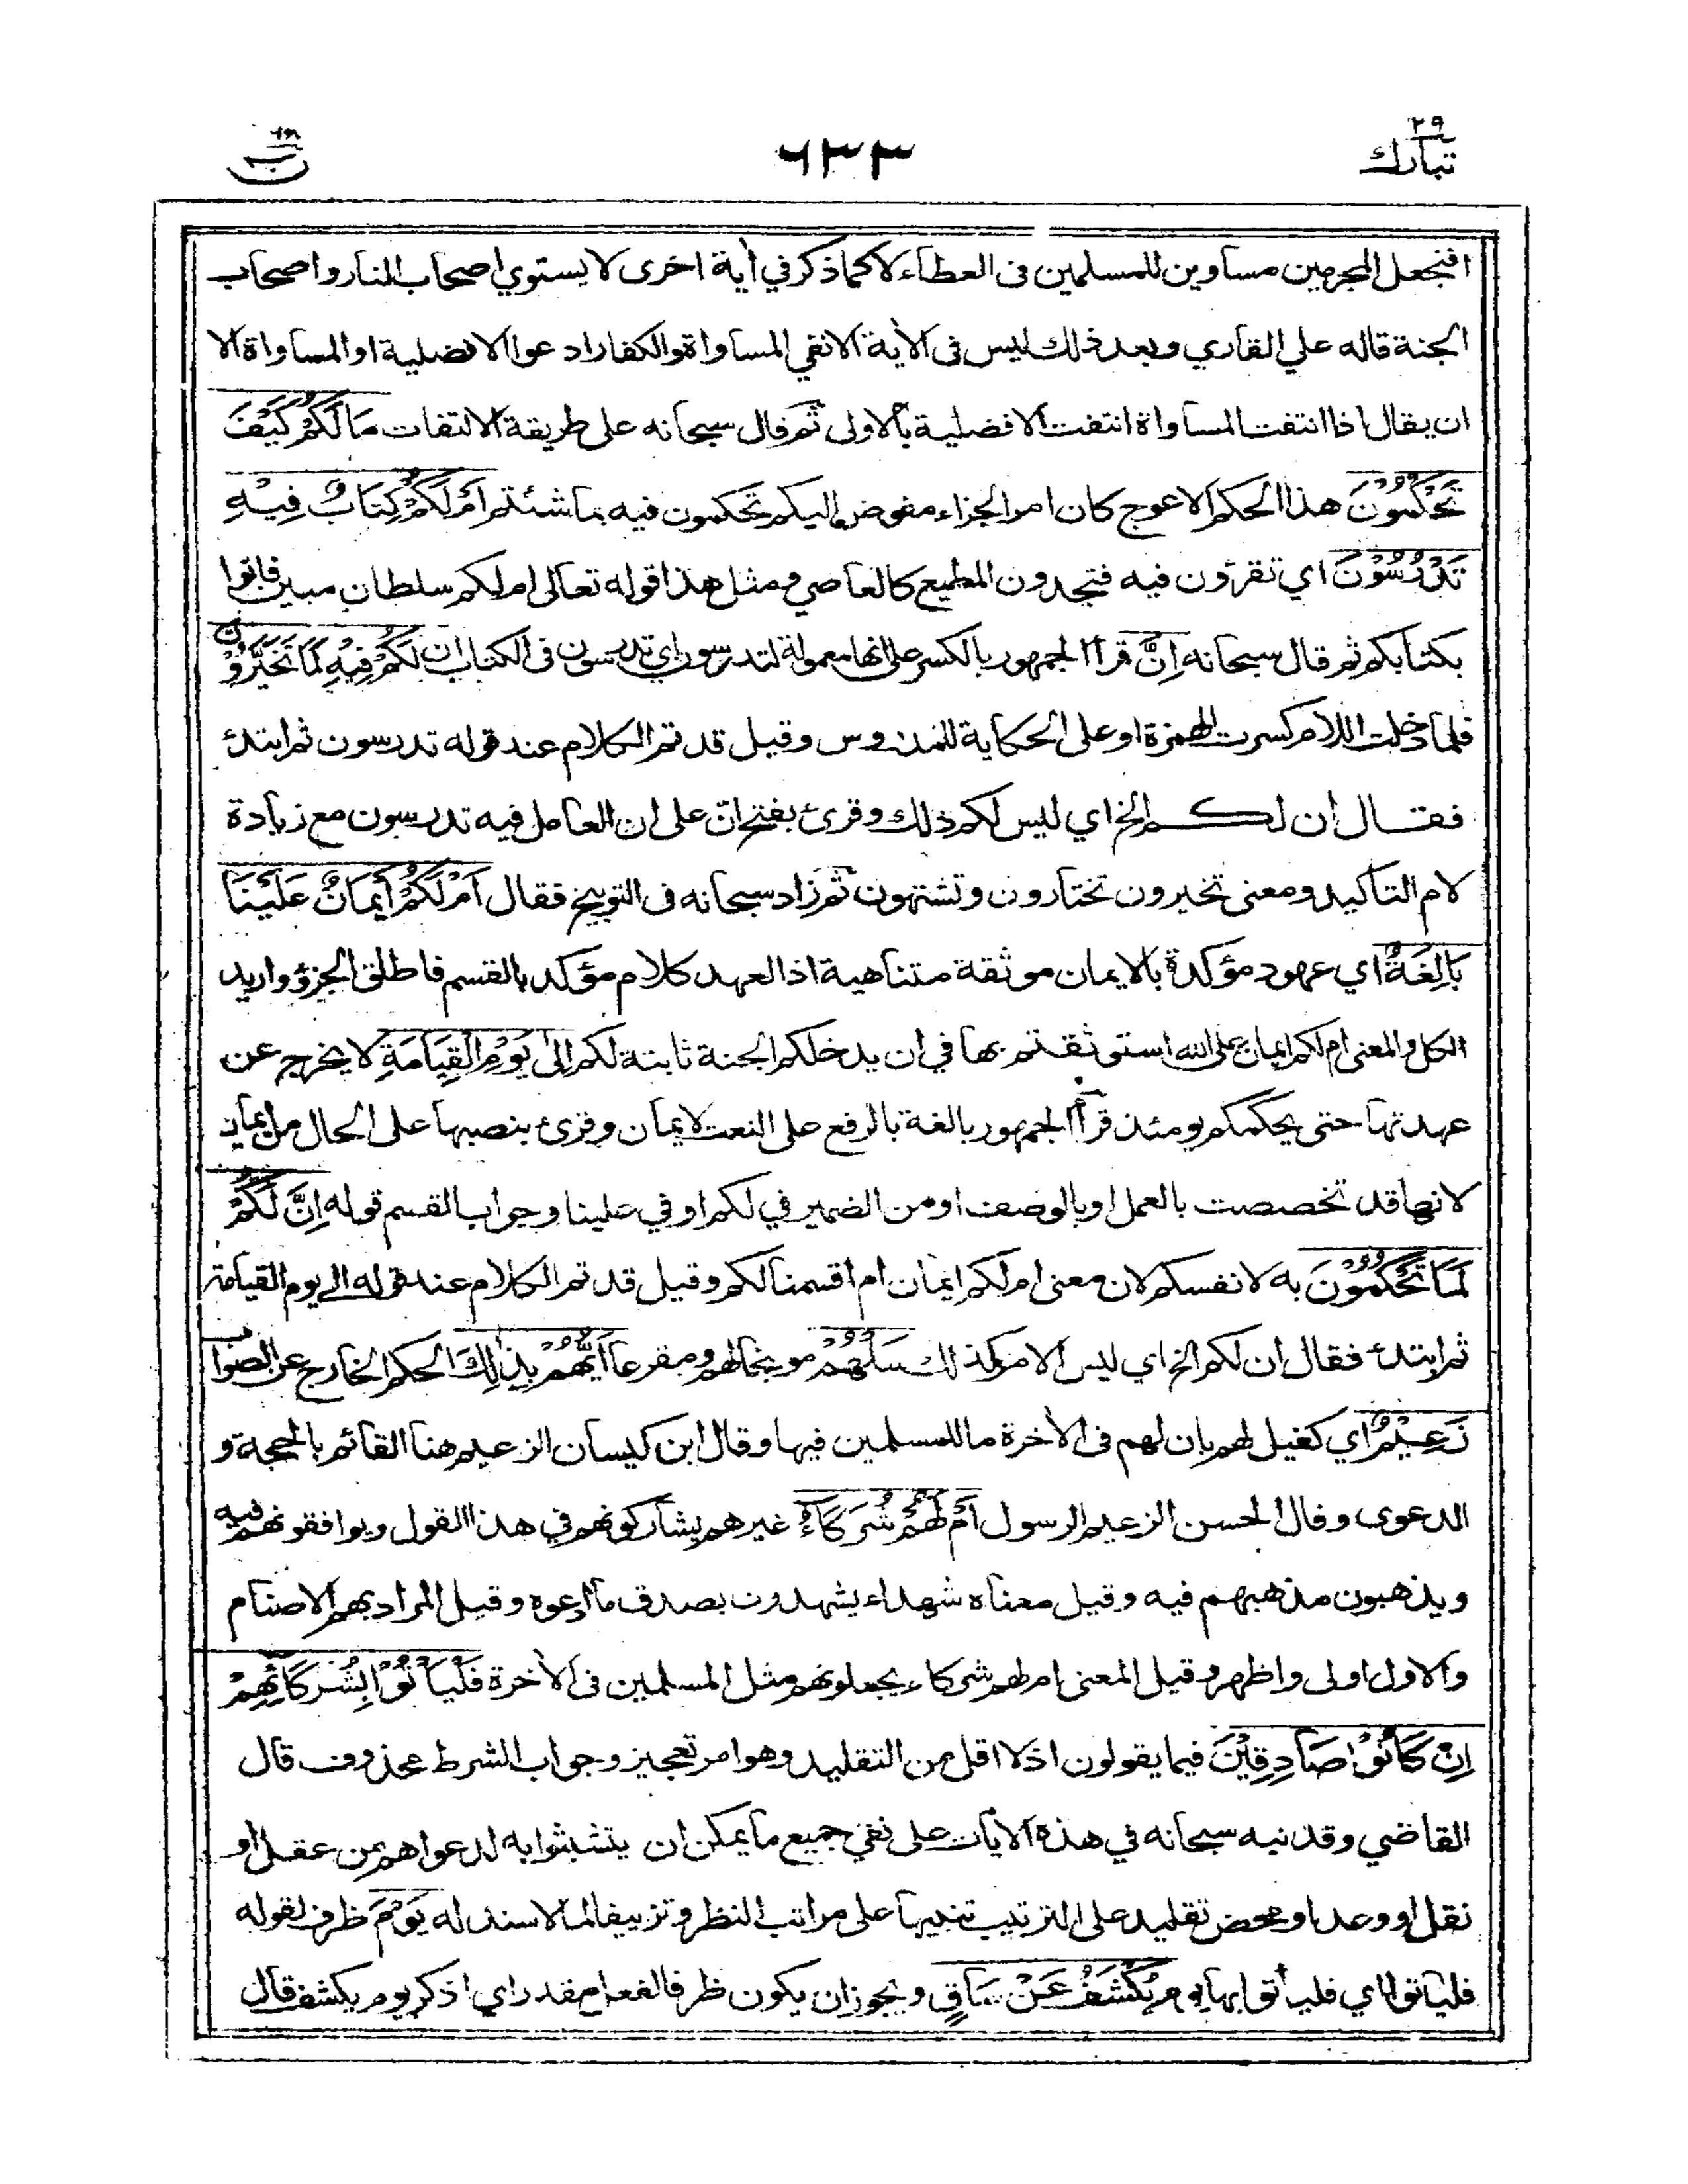 تبارك ٢٩
٦٣٣
ن ٦٨
افنجعل المجرمين مساوين للمسلمين فى العطاء لا كما ذكر في أية اخرى لا يستوي اصحاب النار واصحاب
الجنة قاله علي القاري وبعد ذلك ليس فى الأية الا نفي المساواة والكفار ادعوا الافضلية او المساواة الا
ان يقال اذا انتفت المساواة انتفت الافضلية بالاولى ثم قال سبحانه على طريقة الالتفات مَا لَكُمْ كَيْفَ
تَحْكُمُوْنَ هذا الحكم الاعوج كان امر الجزاء مفوض اليكم تحكمون فيه بما شئتم اَمْ لَكُمْ كِتَابٌ فِيْهِ
تَدْرُسُوْنَ اي تقرؤن فيه فتجدون المطيع كالعاصي ومثل هذا قوله تعالى ام لكم سلطان مبين فاتوا
بكتابكم ثم قال سبحانه اِنَّ قرأ الجمهور بالكسر على انها معمولة لتدرسون اي تدرسون فى الكتاب ان لَكُمْ فِيْهِ لَمَا تَخَيَّرُوْنَ
فلما دخلت اللام كسرت الهمزة او على الحكاية للمدروس وقيل قد تم الكلام عند قوله تدرسون ثم ابتدئ
فقال ان لكم الخ اي ليس لكم ذلك وقرئ بفتح ان على ان العامل فيه تدرسون مع زيادة
لام التاكيد ومعنى تخيرون تختارون وتشتهون ثم زاد سبحانه فى التوبيخ فقال اَمْ لَكُمْ أَيْمَانٌ عَلَيْنَا
بَالِغَةٌ اي عهود مؤكدة بالايمان موثقة متناهية اذ العهد كلام مؤكد بالقسم فاطلق الجزؤ واريد
الكل والمعنى ام لكم ايمان على الله استوثقتم بها في ان يدخلكم الجنة ثابتة لكم اِلَىٰ يَوْمِ الْقِيَامَةِ لا يخرج عن
عهدتها حتى يحكمكم يومئذ قرأ الجمهور بالغة بالرفع على النعت لايمان وقرئ بنصبها على الحال من ايمان
لانها قد تخصصت بالعمل او بالوصف او من الضمير في لكم او في علينا وجواب القسم قوله اِنَّ لَكُمْ
لَمَا تَحْكُمُوْنَ به لانفسكم لان معنى ام لكم ايمان ام اقسمنا لكم وقيل قد تم الكلام عند قوله الى يوم القيامة
ثم ابتدئ فقال ان لكم الخ اي ليس الامر كذلك سَلْهُمْ موبخا لهم ومقرعا اَيُّهُمْ بِذٰلِكَ الحكم الخارج عن الصواب
زَعِيْمٌ اي كفيل لهم بان لهم فى الأخرة ما للمسلمين فيها وقال ابن كيسان الزعيم هنا القائم بالحجة و
الدعوى وقال الحسن الزعيم الرسول اَمْ لَهُمْ شُرَكَاءُ غيرهم يشاركونهم في هذا القول ويوافقونهم فيه
ويذهبون مذهبهم فيه وقيل معناه شهداء يشهدون بصدق ما ادعوه وقيل المراد بهم الاصنام
والاول اولى واظهر وقيل المعنى ام لهم شركاء يجعلونهم مثل المسلمين فى الأخرة فَلْيَأْتُوْا بِشُرَكَائِهِمْ
اِنْ كَانُوْا صَادِقِيْنَ فيما يقولون اذ لا اقل من التقليد وهو امر تعجيز وجواب الشرط محذوف قال
القاضي وقد نبه سبحانه في هذه الايات على نفي جميع ما يمكن ان يتشبثوا به لدعواهم من عقل او
نقل او وعد او محض تقليد على الترتيب تنبيها على مراتب النظر وتزييفا لما لا سند له يَوْمَ ظرف لقوله
فلياتوا اي فليأتوا بها يوم يُكْشَفُ عَنْ سَاقٍ ويجوز ان يكون ظرفا لفعل مقدر اي اذكر يوم يكشف قال